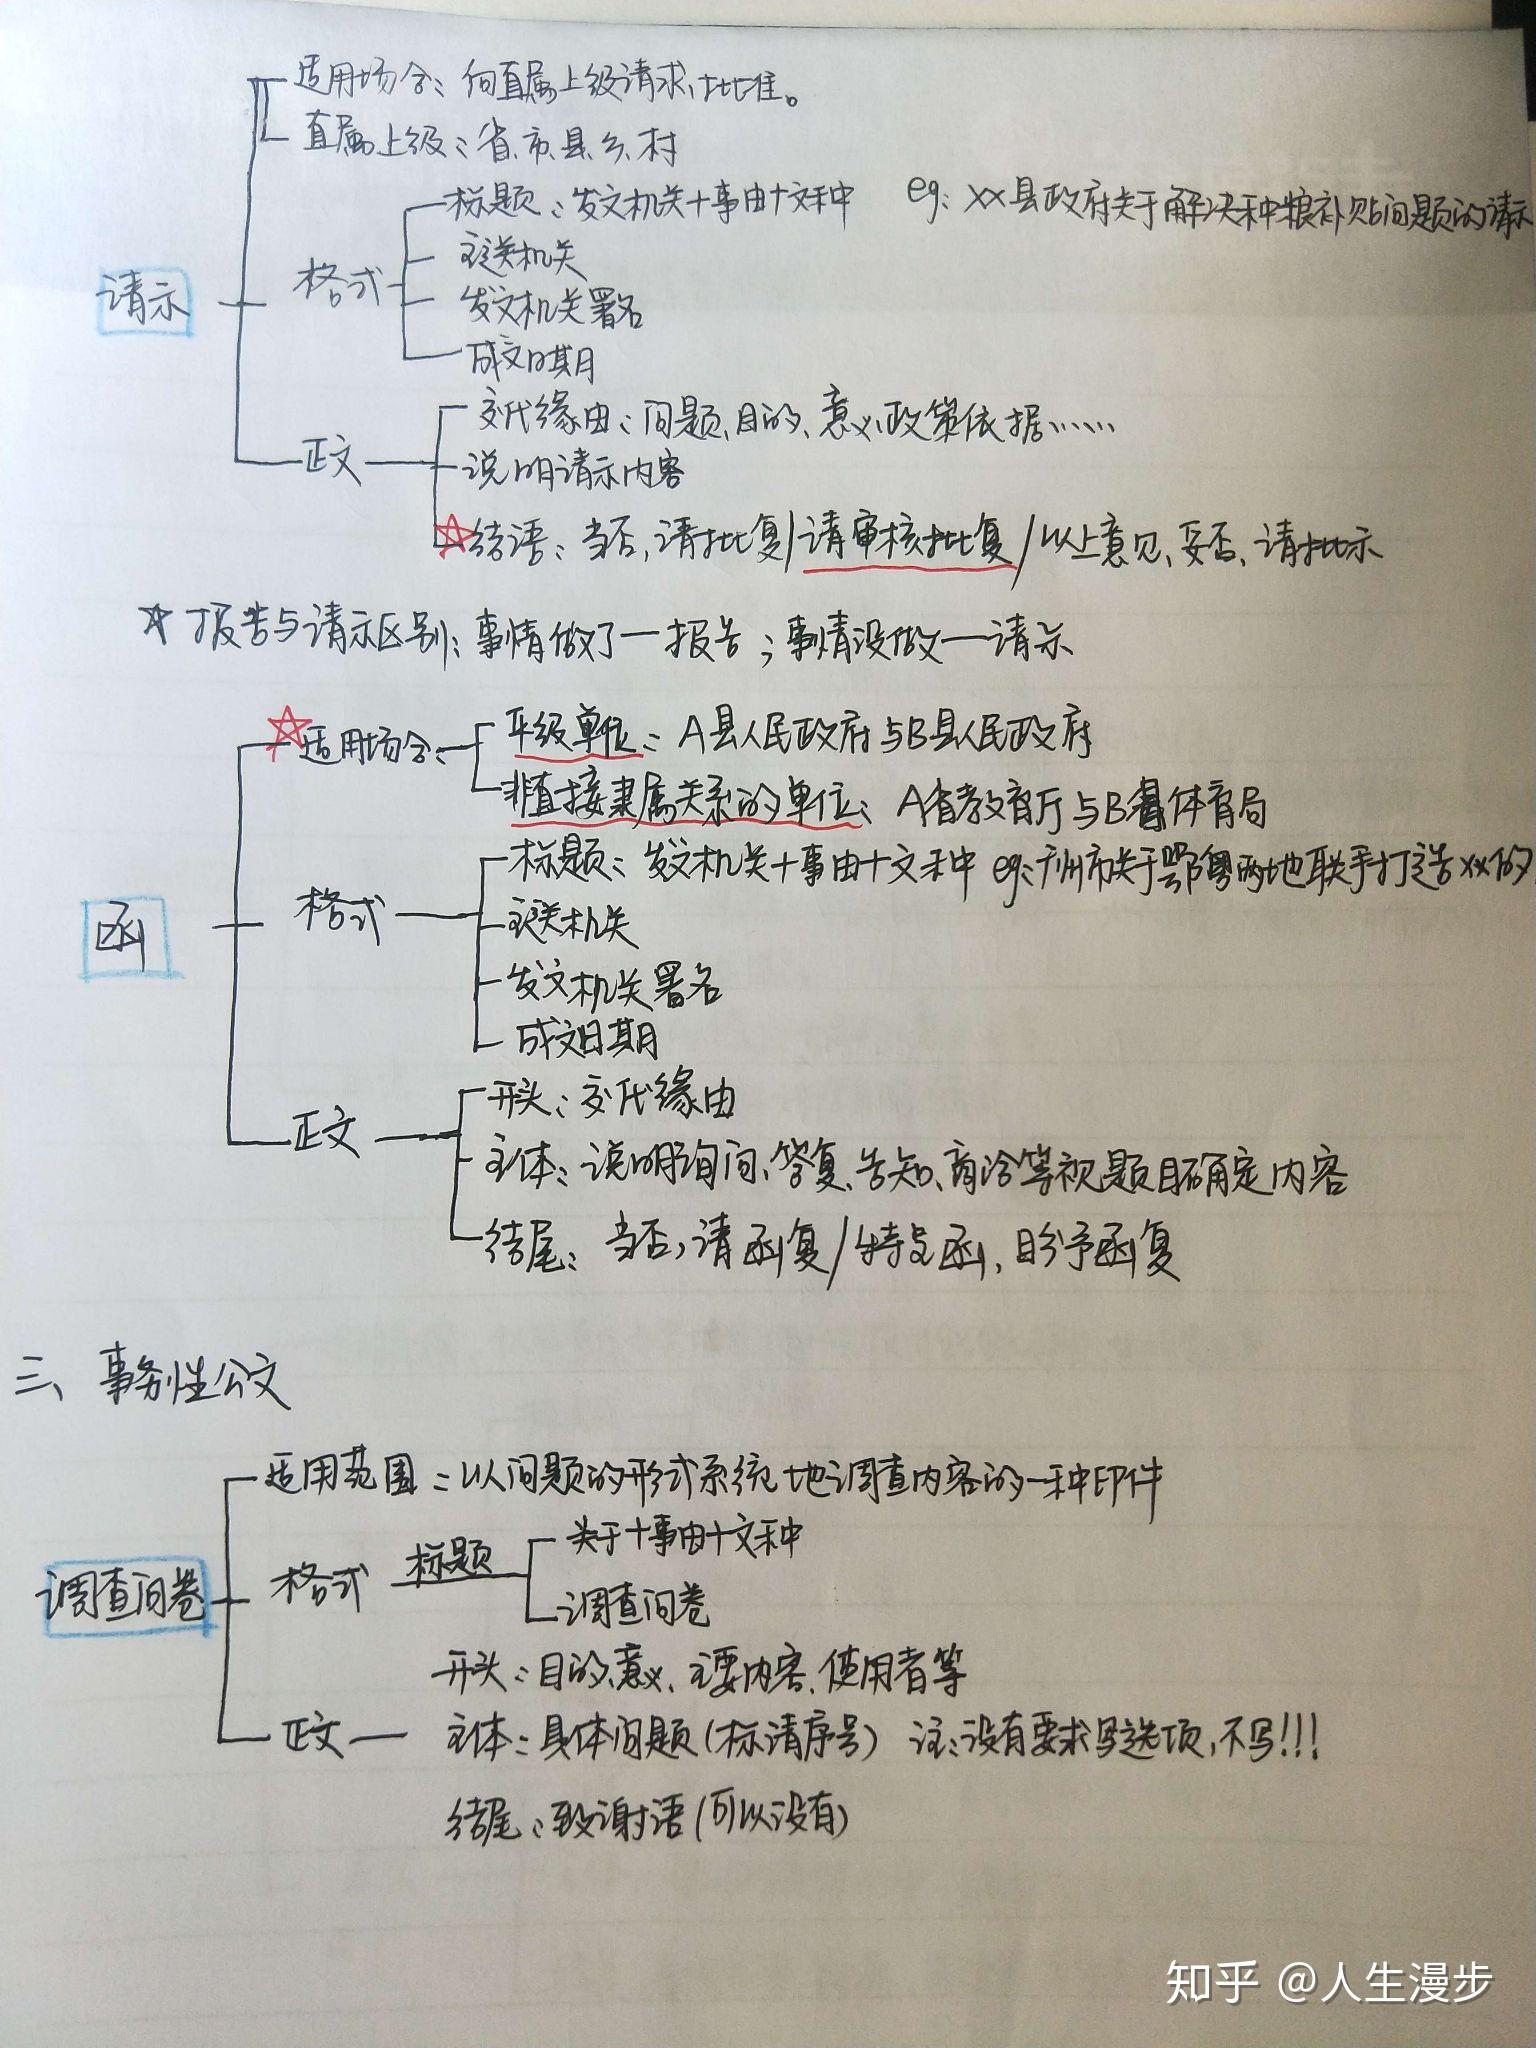 适用场合：向直属上级请求、批准。
直属上级：省、市、县、乡、村
标题：发文机关+事由+文种 eg：××县政府关于解决种粮补贴问题的请示
主送机关
请示 格式
发文机关署名
成文日期
交代缘由：问题、目的、意义、政策依据……
正文
说明请示内容
☆结语：当否，请批复/请审核批复/以上意见，妥否，请批示
☆报告与请示区别：事情做了—报告；事情没做—请示
☆适用场合：
平级单位：A县人民政府与B县人民政府
非直接隶属关系的单位：A省教育厅与B县体育局
标题：发文机关+事由+文种 eg：广州市关于鄂粤两地联手打造××的
函 格式
主送机关
发文机关署名
成文日期
开头：交代缘由
正文
主体：说明询问、答复、告知、商洽等视题目确定内容
结尾：当否，请函复/特此函，盼予函复
三、事务性公文
适用范围：以问题的形式系统地调查内容的一种印件
关于+事由+文种
调查问卷 格式 标题
调查问卷
开头：目的、意义、主要内容、使用者等
正文 主体：具体问题（标清序号） 注：没有要求写选项，不写!!!
结尾：致谢语（可以没有）
知乎 @人生漫步